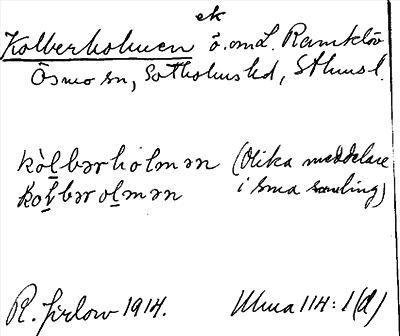 ek
Kolberholmen ö. om L. Ramklöv
Ösmo sn, Sotholms hd, Sthms l.
kòlbərhòlmən (Olika meddelare
kolbərolmən i sma samling)
R. Jirlow 1914. Uma 114:1(d)